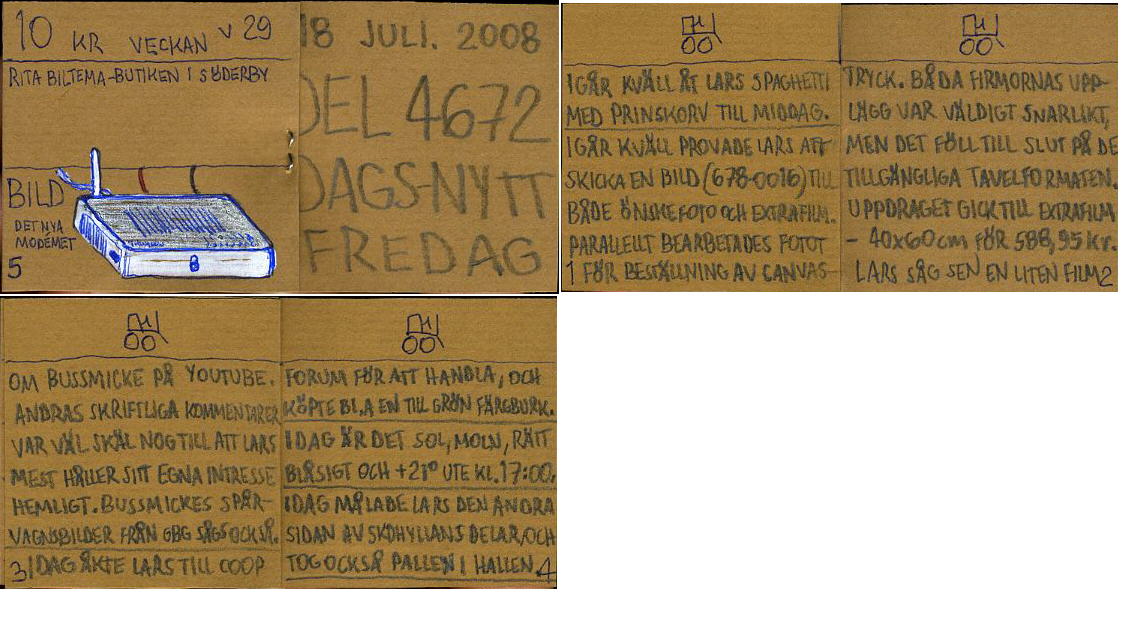 10 KR VECKAN V 29
RITA BILTEMA-BUTIKEN I SÖDERBY
BILD
DET NYA
MODEMET
5
18 JULI. 2008
DEL 4672
DAGS-NYTT
FREDAG
IGÅR KVÄLL ÅT LARS SPAGHETTI
MED PRINSKORV TILL MIDDAG.
IGÅR KVÄLL PROVADE LARS ATT
SKICKA EN BILD (678-0016) TILL
BÅDE ÖNSKEFOTO OCH EXTRAFILM.
PARALLELLT BEARBETADES FOTOT
1 FÖR BESTÄLLNING AV CANVAS-
TRYCK. BÅDA FIRMORNAS UPP-
LÄGG VAR VÄLDIGT SNARLIKT,
MEN DET FÖLL TILL SLUT PÅ DE
TILLGÄNGLIGA TAVELFORMATEN.
UPPDRAGET GICK TILL EXTRAFILM
- 40x60cm FÖR 588,95 kr.
LARS SÅG SEN EN LITEN FILM 2
OM BUSSMICKE PÅ YOUTUBE.
ANDRAS SKRIFTLIGA KOMMENTARER
VAR VÄL SKÄL NOG TILL ATT LARS
MEST HÅLLER SITT EGNA INTRESSE
HEMLIGT. BUSSMICKES SPÅR-
VAGNSBILDER FRÅN GBG SÅGS OCKSÅ.
3 IDAG ÅKTE LARS TILL COOP
FORUM FÖR ATT HANDLA, OCH
KÖPTE BL.A EN TILL GRÖN FÄRGBURK.
IDAG ÄR DET SOL, MOLN, RÄTT
BLÅSIGT OCH +21° UTE KL. 17:00.
IDAG MÅLADE LARS DEN ANDRA
SIDAN AV SKOHYLLANS DELAR, OCH
TOG OCKSÅ PALLEN I HALLEN. 4